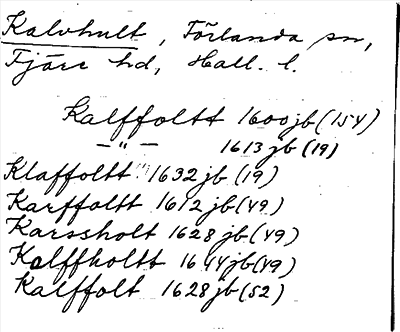 Kalvhult, Förlanda sn,
Fjäre hd, Hall. l.
Kalffoltt 1600 jb (154)
— " — 1613 jb (19)
Klaffoltt "! 1632 jb (19)
Karffoltt 1612 jb (49)
Karssholt 1628 jb (49)
Kalffholtt 1644 jb (49)
Kalffolt 1628 jb (52)